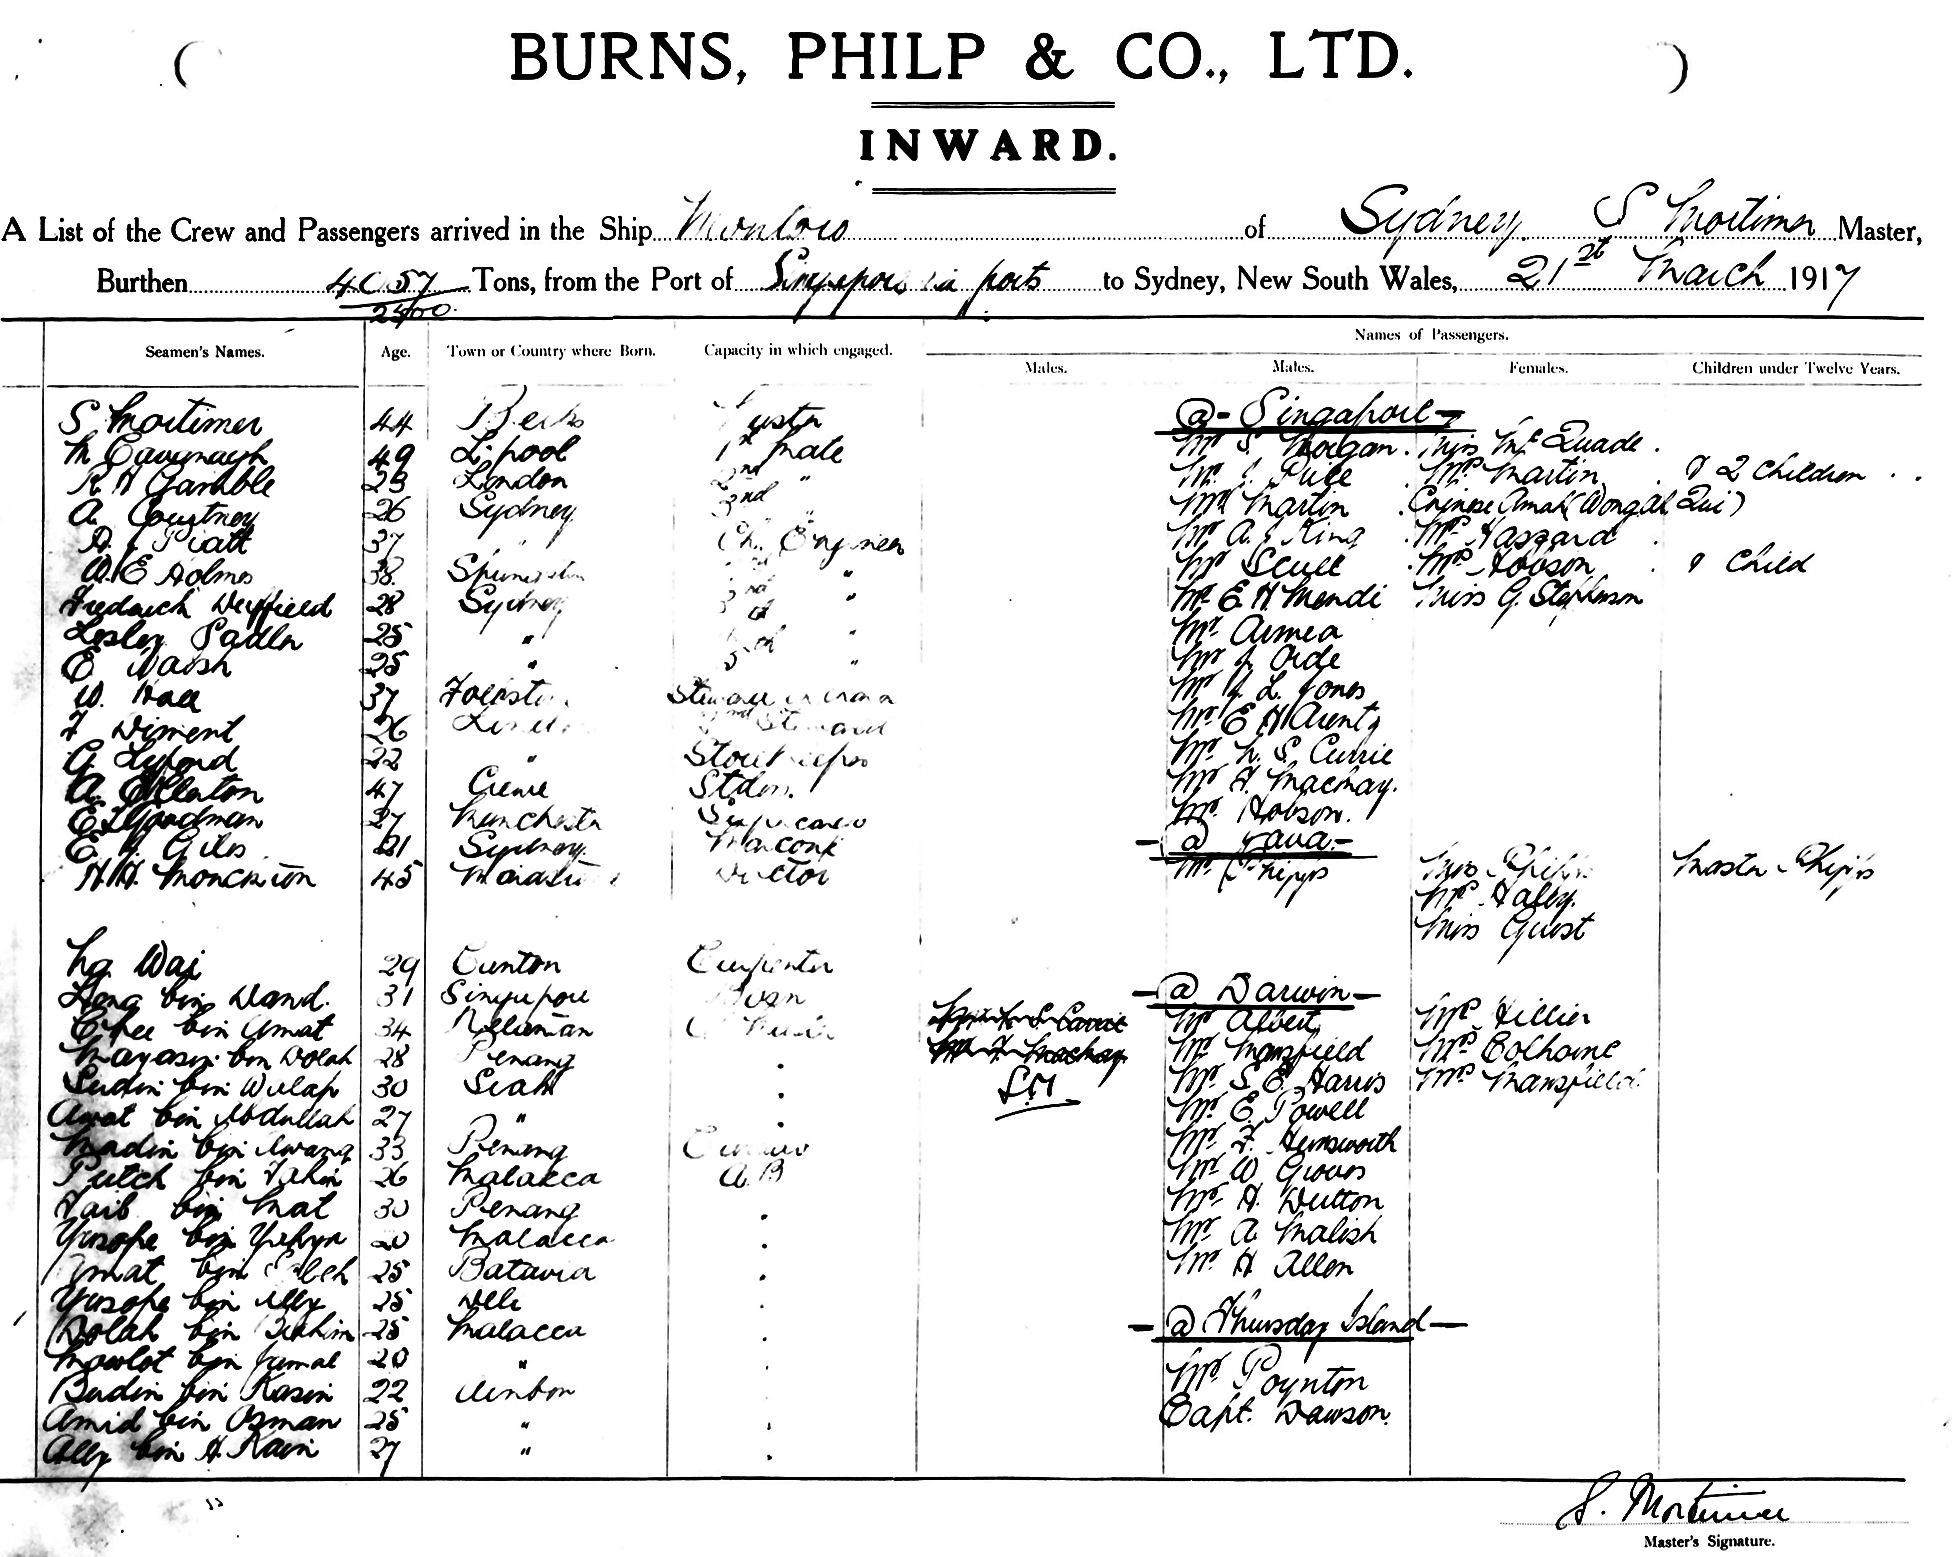 BURNS, PHILP & CO., LTD.
INWARD.
A List of the Crew and Passengers arrived in the Ship Montoro of Sydney S Mortimer Master,
Burthen 4057 Tons, from the Port of Singapore via ports to Sydney, New South Wales, 21st March 1917
Names of Passengers.
Seamen's Names. Age. Town or Country where Born. Capacity in which engaged. Males. Males. Females. Children under Twelve Years.
@ Singapore
S Mortimer 44 Berks Master
M Cavanagh 49 L'pool 1st Mate Mr S Morgan Miss McQuade
R H Gamble 23 London 2nd " Mr Price Mrs Martin & 2 Children
A. Courtney 26 Sydney 3nd " Mr Martin Chinese Amah (Wongah Qui)
Piatt 37 Ch. Engineer Mr A. J King Mrs Hassard
W. E Holmes 38 " Mr Scull Mrs Hobson & Child
Fredrick Weyffield 28 Sydney " Mr E. H Mendi Miss G. Stephenson
Lesley Sadler 25 " " Mr Armea
E 25 " " Mr J. Orde
W. Hall 37 Mr L. Jones
F Diment 26 2nd Steward Mr E H Arentz
G Lyford 22 " Storekeeper Mr S. Currie
A. Ollerton 47 Crewe Mr Mackay.
E Goodman 27 Manchester Supercargo Mr Hobson.
E Giles 21 Sydney Marconi @ Java
H. H. Monckton 45 Doctor Mr Phipps Mrs Phipps Master Phipps
Mrs Haley.
Miss Guest
Wai 29 Canton Carpenter
bin Daud. 31 Singapore @ Darwin
bin Amat 34 Mr Albert Mrs Hillier
bin Dolah 28 Penang . Mr Mansfield Mrs Colhoune
Sudin bin 30 . Mr S. E. Harris Mrs Mansfield
Awat bin Abdullah 27 " . S.M Mr E. Powell
Madin bin Awang 33 Penang Mr F. Hemsworth
Putch bin 26 Malacca A.B Mr W Groves
Taib bin Mat 30 Penang . Mr H. Dutton
Yusope bin Yahya 20 Malacca . Mr A Malish
Amat bin 25 Batavia . Mr H Allen
Yusope bin Ally 25 Delli .
Dolah bin 25 Malacca . @ Thursday Island
bin Jamal 20 " .
Budin bin Kasin 22 . Mr Poynton
Amid bin Osman 25 " . Capt. Dawson.
Ally bin H. 27 " .
S. Mortimer
Master's Signature.